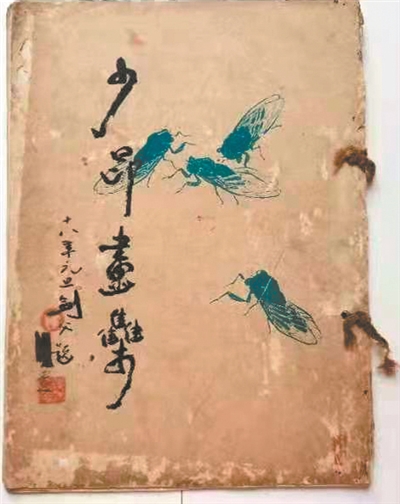 少昂畫雧
十八年元旦劍父題